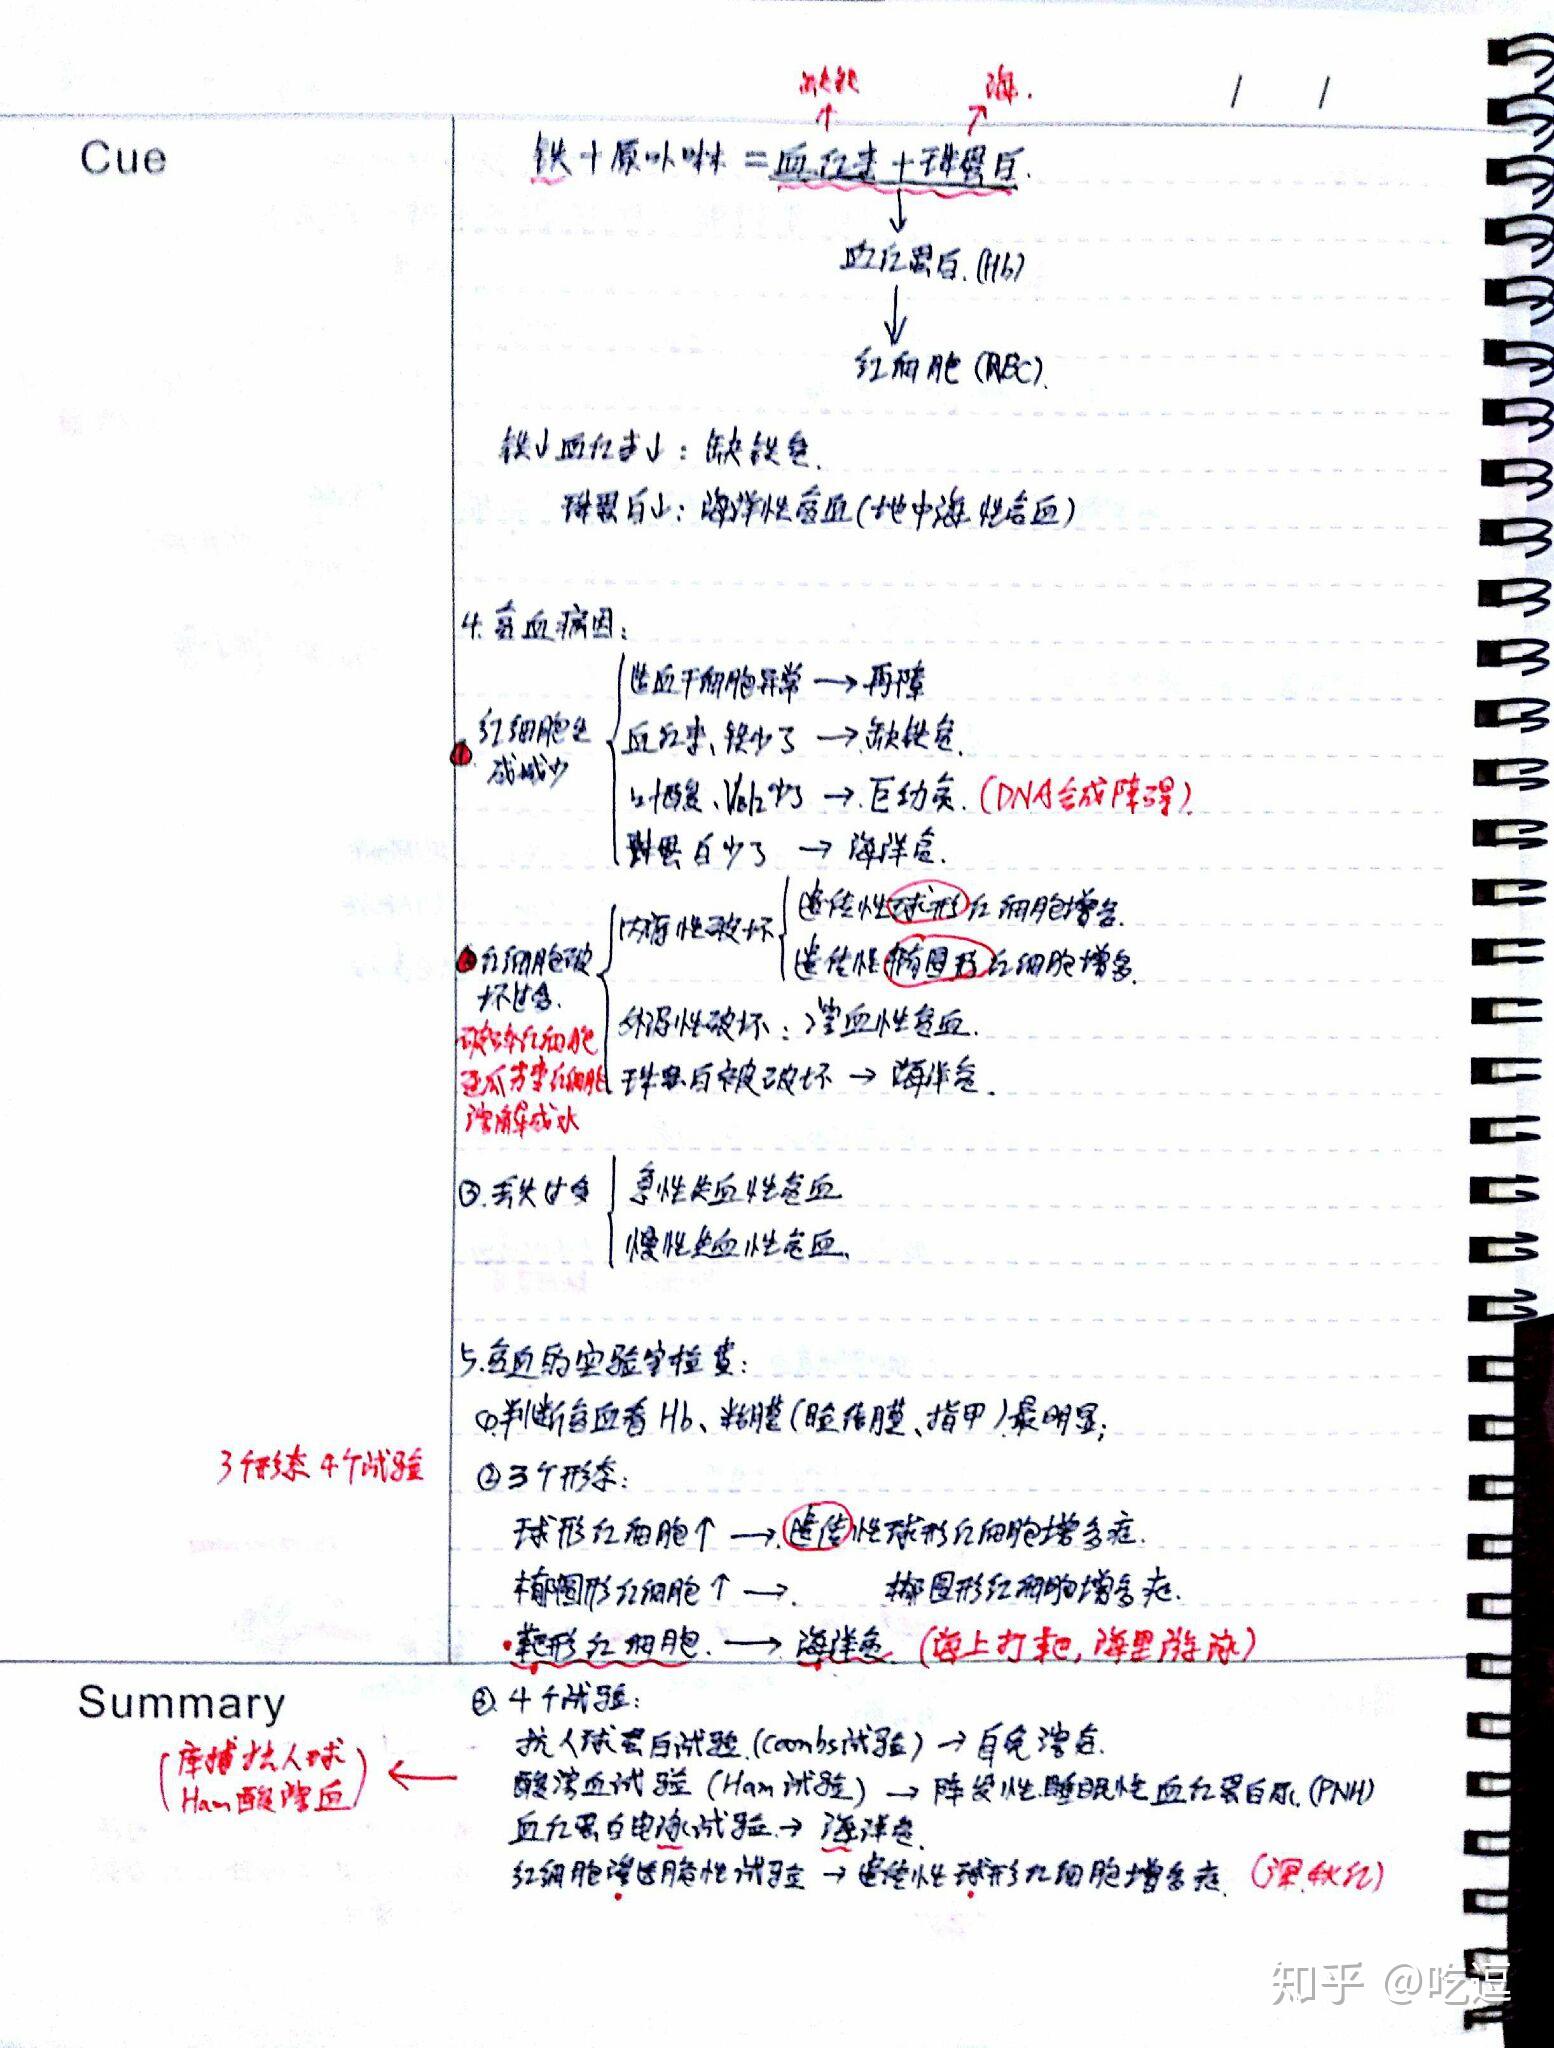 缺铁 海.
/ /
Cue
铁+原卟啉=血红素+珠蛋白.
血红蛋白.(Hb)
红细胞(RBC).
铁↓血红素↓:缺铁贫.
珠蛋白↓:海洋性贫血(地中海性贫血)
4.贫血病因:
①红细胞生成减少
造血干细胞异常→再障
血红素、铁少了→缺铁贫.
叶酸、VB12少了→巨幼贫.(DNA合成障碍)
珠蛋白少了→海洋贫.
②红细胞破坏过多.
破碎红细胞
溶解成水
内源性破坏
遗传性球形红细胞增多.
遗传性椭圆形红细胞增多.
外源性破坏:溶血性贫血.
珠蛋白被破坏→海洋贫.
③.丢失过多
急性失血性贫血
慢性失血性贫血.
5.贫血的实验室检查:
①判断贫血看Hb、粘膜(睑结膜、指甲)最明显;
3个形态4个试验
②3个形态:
球形红细胞↑→遗传性球形红细胞增多症.
椭圆形红细胞↑→ 椭圆形红细胞增多症.
靶形红细胞.→海洋贫.(海上打靶,海里游泳)
Summary
③4个试验:
抗人球蛋白试验.(Coombs试验)→自免溶贫.
(库姆抗人球
Ham酸溶血)←
酸溶血试验(Ham试验)→阵发性睡眠性血红蛋白尿.(PNH)
血红蛋白电泳试验→海洋贫.
红细胞渗透脆性试验→遗传性球形红细胞增多症.
知乎 @吃逗